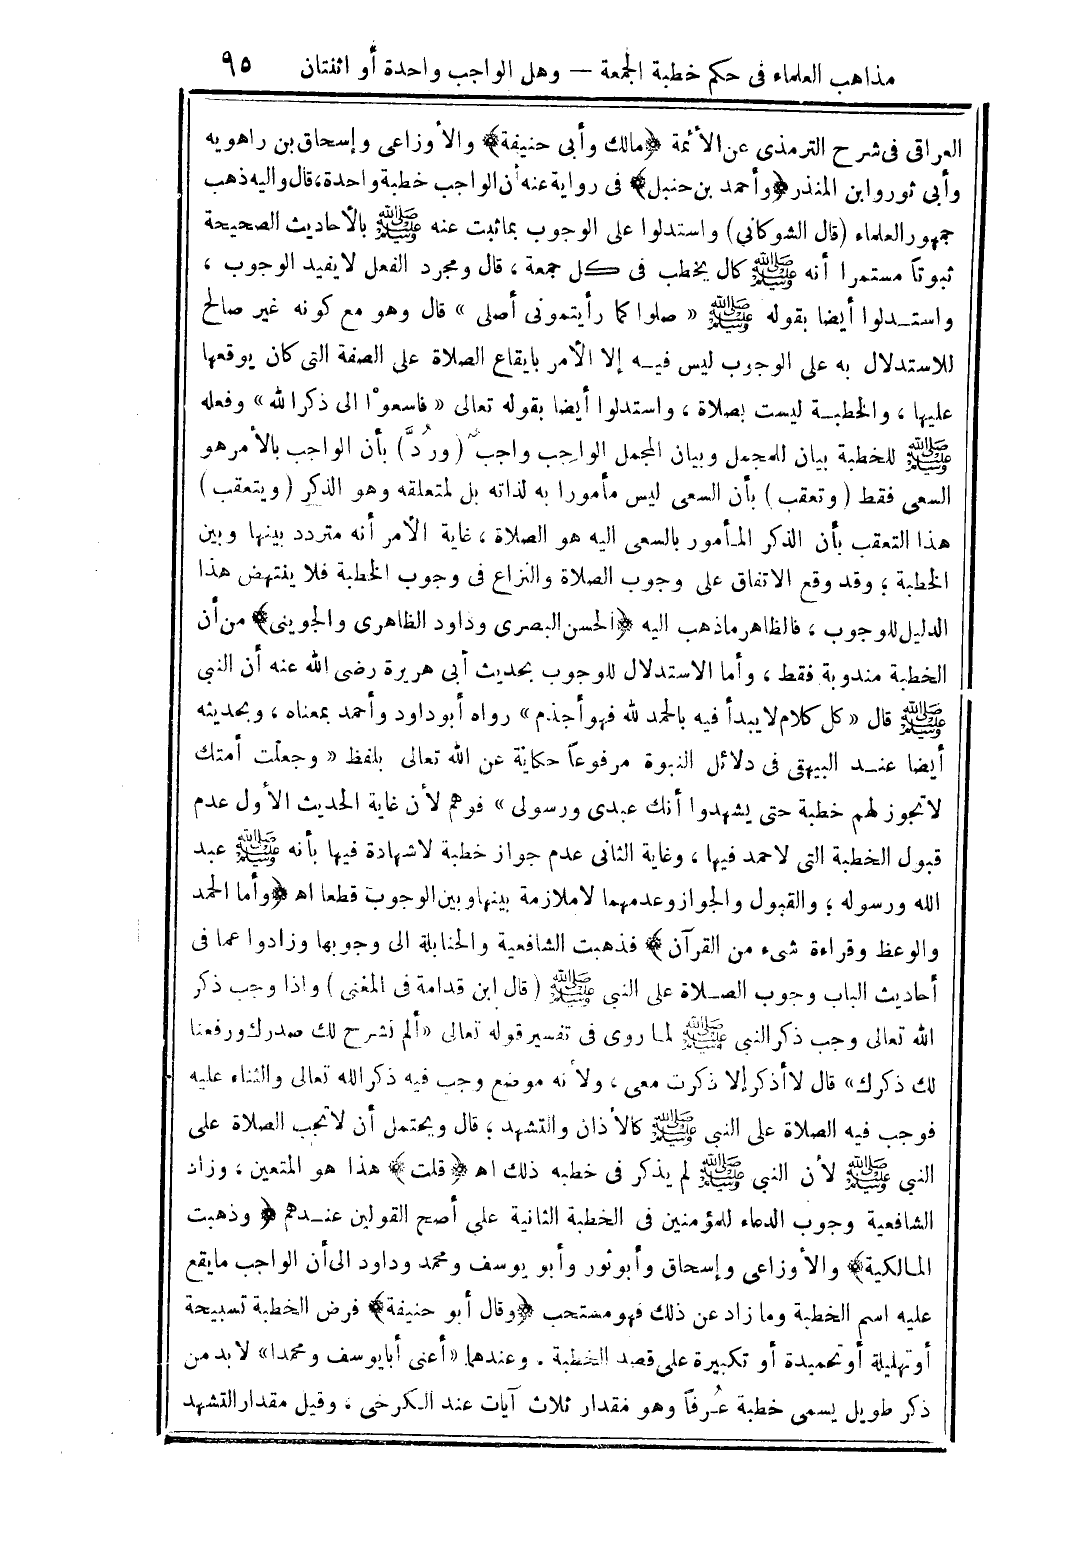 مذاهب العلماء فى حكم خطبة الجمعة — وهل الواجب واحدة أو اثنتان ٩٥
العراقى فى شرح الترمذى عن الأئمة ﴿مالك وأبى حنيفة﴾ والأوزاعى وإسحاق بن راهويه
وأبى ثور وابن المنذر ﴿وأحمد بن حنبل﴾ فى رواية عنه أن الواجب خطبة واحدة، قال واليه ذهب
جمهور العلماء (قال الشوكانى) واستدلوا على الوجوب بماثبت عنه ﷺ بالأحاديث الصحيحة
ثبوتاً مستمرا أنه ﷺ كال يخطب فى كل جمعة، قال ومجرد الفعل لايفيد الوجوب،
واستدلوا أيضا بقوله ﷺ « صلوا كما رأيتمونى أصلى » قال وهو مع كونه غير صالح
للاستدلال به على الوجوب ليس فيه إلا الأمر بايقاع الصلاة على الصفة التى كان يوقعها
عليها، والخطبة ليست بصلاة، واستدلوا أيضا بقوله تعالى « فاسعوا الى ذكر الله» وفعله
ﷺ للخطبة بيان للمجمل وبيان المجمل الواجب واجب (ورُدَّ) بأن الواجب بالأمر هو
السعى فقط (وتعقب) بأن السعى ليس مأمورا به لذاته بل لمتعلقه وهو الذكر (ويتعقب)
هذا التعقب بأن الذكر المأمور بالسعى اليه هو الصلاة، غاية الأمر أنه متردد بينها وبين
الخطبة؛ وقد وقع الاتفاق على وجوب الصلاة والنزاع فى وجوب الخطبة فلا ينتهض هذا
الدليل للوجوب، فالظاهر ماذهب اليه ﴿الحسن البصرى وداود الظاهرى والجوينى﴾ من أن
الخطبة مندوبة فقط، وأما الاستدلال للوجوب بحديث أبى هريرة رضى الله عنه أن النبى
ﷺ قال «كل كلام لايبدأ فيه بالحمد لله فهو أجذم» رواه أبو داود وأحمد بمعناه، وبحديثه
أيضا عند البيهقى فى دلائل النبوة مرفوعاً حكاية عن الله تعالى بلفظ « وجعلت أمتك
لاتجوز لهم خطبة حتى يشهدوا أنك عبدى ورسولى » فوهم لأن غاية الحديث الأول عدم
قبول الخطبة التى لاحمد فيها، وغاية الثانى عدم جواز خطبة لاشهادة فيها بأنه ﷺ عبد
الله ورسوله؛ والقبول والجواز وعدمهما لاملازمة بينها وبين الوجوب قطعا اه ﴿وأما الحمد
والوعظ وقراءة شىء من القرآن﴾ فذهبت الشافعية والحنابلة الى وجوبها وزادوا عما فى
أحاديث الباب وجوب الصلاة على النبى ﷺ (قال ابن قدامة فى المغنى) واذا وجب ذكر
الله تعالى وجب ذكر النبى ﷺ لما روى فى تفسير قوله تعالى «ألم نشرح لك صدرك ورفعنا
لك ذكرك» قال لا أذكر إلا ذكرت معى، ولأنه موضع وجب فيه ذكر الله تعالى والثناء عليه
فوجب فيه الصلاة على النبى ﷺ كالأذان والتشهد؛ قال ويحتمل أن لاتجب الصلاة على
النبى ﷺ لأن النبى ﷺ لم يذكر فى خطبه ذلك اه ﴿قلت﴾ هذا هو المتعين، وزاد
الشافعية وجوب الدعاء للمؤمنين فى الخطبة الثانية على أصح القولين عندهم ﴿وذهبت
المالكية﴾ والأوزاعى وإسحاق وأبوثور وأبو يوسف ومحمد وداود الى أن الواجب مايقع
عليه اسم الخطبة وما زاد عن ذلك فهو مستحب ﴿وقال أبو حنيفة﴾ فرض الخطبة تسبيحة
أوتهليلة أوتحميدة أو تكبيرة على قصد الخطبة . وعندهما «أعنى أبايوسف ومحمدا» لابد من
ذكر طويل يسمى خطبة عُرفاً وهو مقدار ثلاث آيات عند الكرخى، وقيل مقدار التشهد